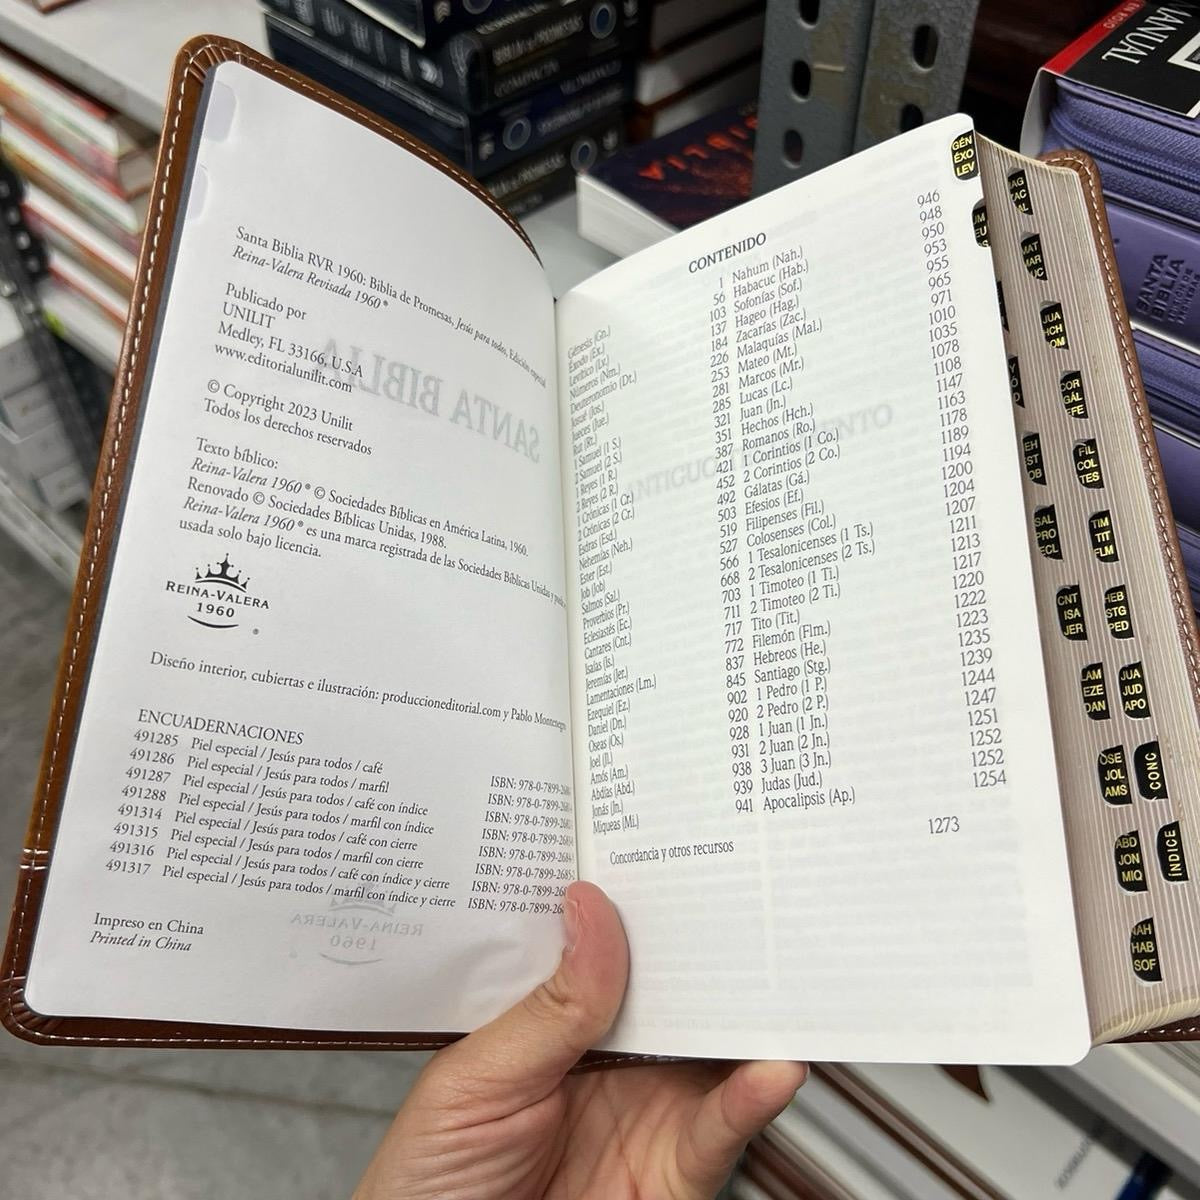 Santa Biblia RVR 1960: Biblia de Promesas, Jesús para todos, Edición especial
Reina-Valera Revisada 1960®
Publicado por
UNILIT
Medley, FL 33166, U.S.A
www.editorialunilit.com
© Copyright 2023 Unilit
Todos los derechos reservados
Texto bíblico:
Reina-Valera 1960® © Sociedades Bíblicas en América Latina, 1960.
Renovado © Sociedades Bíblicas Unidas, 1988.
Reina-Valera 1960® es una marca registrada de las Sociedades Bíblicas Unidas y puede ser
usada solo bajo licencia.
REINA-VALERA
1960
®
Diseño interior, cubiertas e ilustración: produccioneditorial.com y Pablo
ENCUADERNACIONES
491285 Piel especial / Jesús para todos / café
491286 Piel especial / Jesús para todos / marfil
491287 Piel especial / Jesús para todos / café con índice
491288 Piel especial / Jesús para todos / marfil con índice
491314 Piel especial / Jesús para todos / café con cierre
491315 Piel especial / Jesús para todos / marfil con cierre
491316 Piel especial / Jesús para todos / café con índice y cierre
491317 Piel especial / Jesús para todos / marfil con índice y cierre
ISBN: 978-0-7899-
ISBN: 978-0-7899-
ISBN: 978-0-7899-
ISBN: 978-0-7899-
ISBN: 978-0-7899-
ISBN: 978-0-7899-
ISBN: 978-0-7899-
ISBN: 978-0-7899-
Impreso en China
Printed in China
CONTENIDO
Génesis (Gn.) 1
Éxodo (Ex.) 56
Levítico (Lv.) 103
Números (Nm.) 137
Deuteronomio (Dt.) 184
Josué (Jos.) 226
Jueces (Jue.) 253
Rut (Rt.) 281
1 Samuel (1 S.) 285
2 Samuel (2 S.) 321
1 Reyes (1 R.) 351
2 Reyes (2 R.) 387
1 Crónicas (1 Cr.) 421
2 Crónicas (2 Cr.) 452
Esdras (Esd.) 492
Nehemías (Neh.) 503
Ester (Est.) 519
Job (Job) 527
Salmos (Sal.) 566
Proverbios (Pr.) 668
Eclesiastés (Ec.) 703
Cantares (Cnt.) 711
Isaías (Is.) 717
Jeremías (Jer.) 772
Lamentaciones (Lm.) 837
Ezequiel (Ez.) 845
Daniel (Dn.) 902
Oseas (Os.) 920
Joel (Jl.) 928
Amós (Am.) 931
Abdías (Abd.) 938
Jonás (Jn.) 939
Miqueas (Mi.) 941
Nahum (Nah.) 946
Habacuc (Hab.) 948
Sofonías (Sof.) 950
Hageo (Hag.) 953
Zacarías (Zac.) 955
Malaquías (Mal.) 965
Mateo (Mt.) 971
Marcos (Mr.) 1010
Lucas (Lc.) 1035
Juan (Jn.) 1078
Hechos (Hch.) 1108
Romanos (Ro.) 1147
1 Corintios (1 Co.) 1163
2 Corintios (2 Co.) 1178
Gálatas (Gá.) 1189
Efesios (Ef.) 1194
Filipenses (Fil.) 1200
Colosenses (Col.) 1204
1 Tesalonicenses (1 Ts.) 1207
2 Tesalonicenses (2 Ts.) 1211
1 Timoteo (1 Ti.) 1213
2 Timoteo (2 Ti.) 1217
Tito (Tit.) 1220
Filemón (Flm.) 1222
Hebreos (He.) 1223
Santiago (Stg.) 1235
1 Pedro (1 P.) 1239
2 Pedro (2 P.) 1244
1 Juan (1 Jn.) 1247
2 Juan (2 Jn.) 1251
3 Juan (3 Jn.) 1252
Judas (Jud.) 1252
Apocalipsis (Ap.) 1254
Concordancia y otros recursos 1273
GÉN
ÉXO
LEV
SAL
PRO
ECL
CNT
ISA
JER
LAM
EZE
DAN
OSE
JOL
AMS
ABD
JON
MIQ
NAH
HAB
SOF
MAT
MAR
JUA
HCH
ROM
COR
GÁL
EFE
FIL
COL
TES
TIM
TIT
FLM
HEB
STG
PED
JUA
JUD
APO
CONC
ÍNDICE
MANUAL
SANTA
BIBLIA